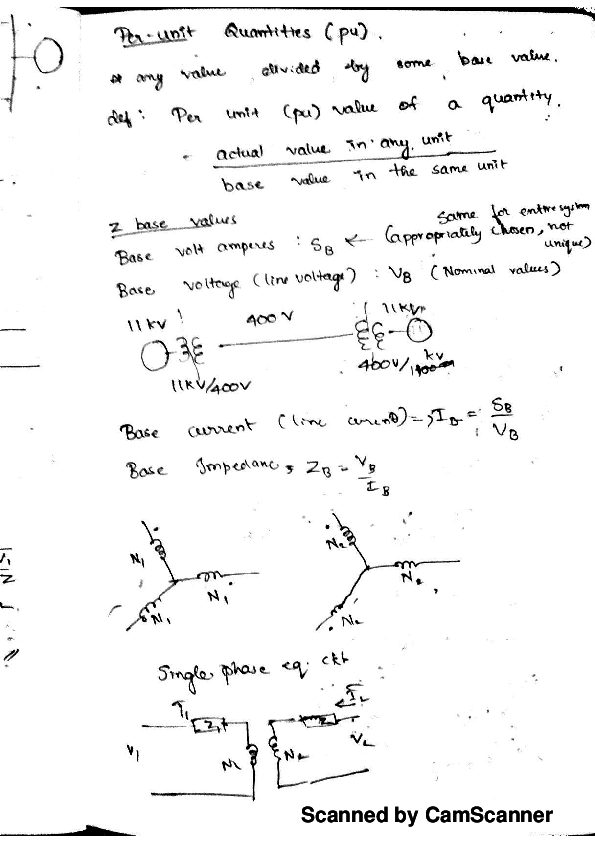 Per-unit Quantities (pu).
* any value divided by some base value.
def: Per unit (pu) value of a quantity.
- actual value in any unit
base value in the same unit
2 base values
same for entire system
Base volt amperes : SB ← (appropriately chosen, not
unique)
Base voltage (line voltage) : VB (Nominal values)
11KV 400V 11KV
11KV/400V 400V/ KV
Base current (line current) =, IB = SB
VB
Base Impedance, ZB = VB
IB
N1 N2
N1 N2
N1 N2
V1
2
Single phase eq. ckt
I1 I2
Z1 Z
V1 N1 N2 V2
Scanned by CamScanner